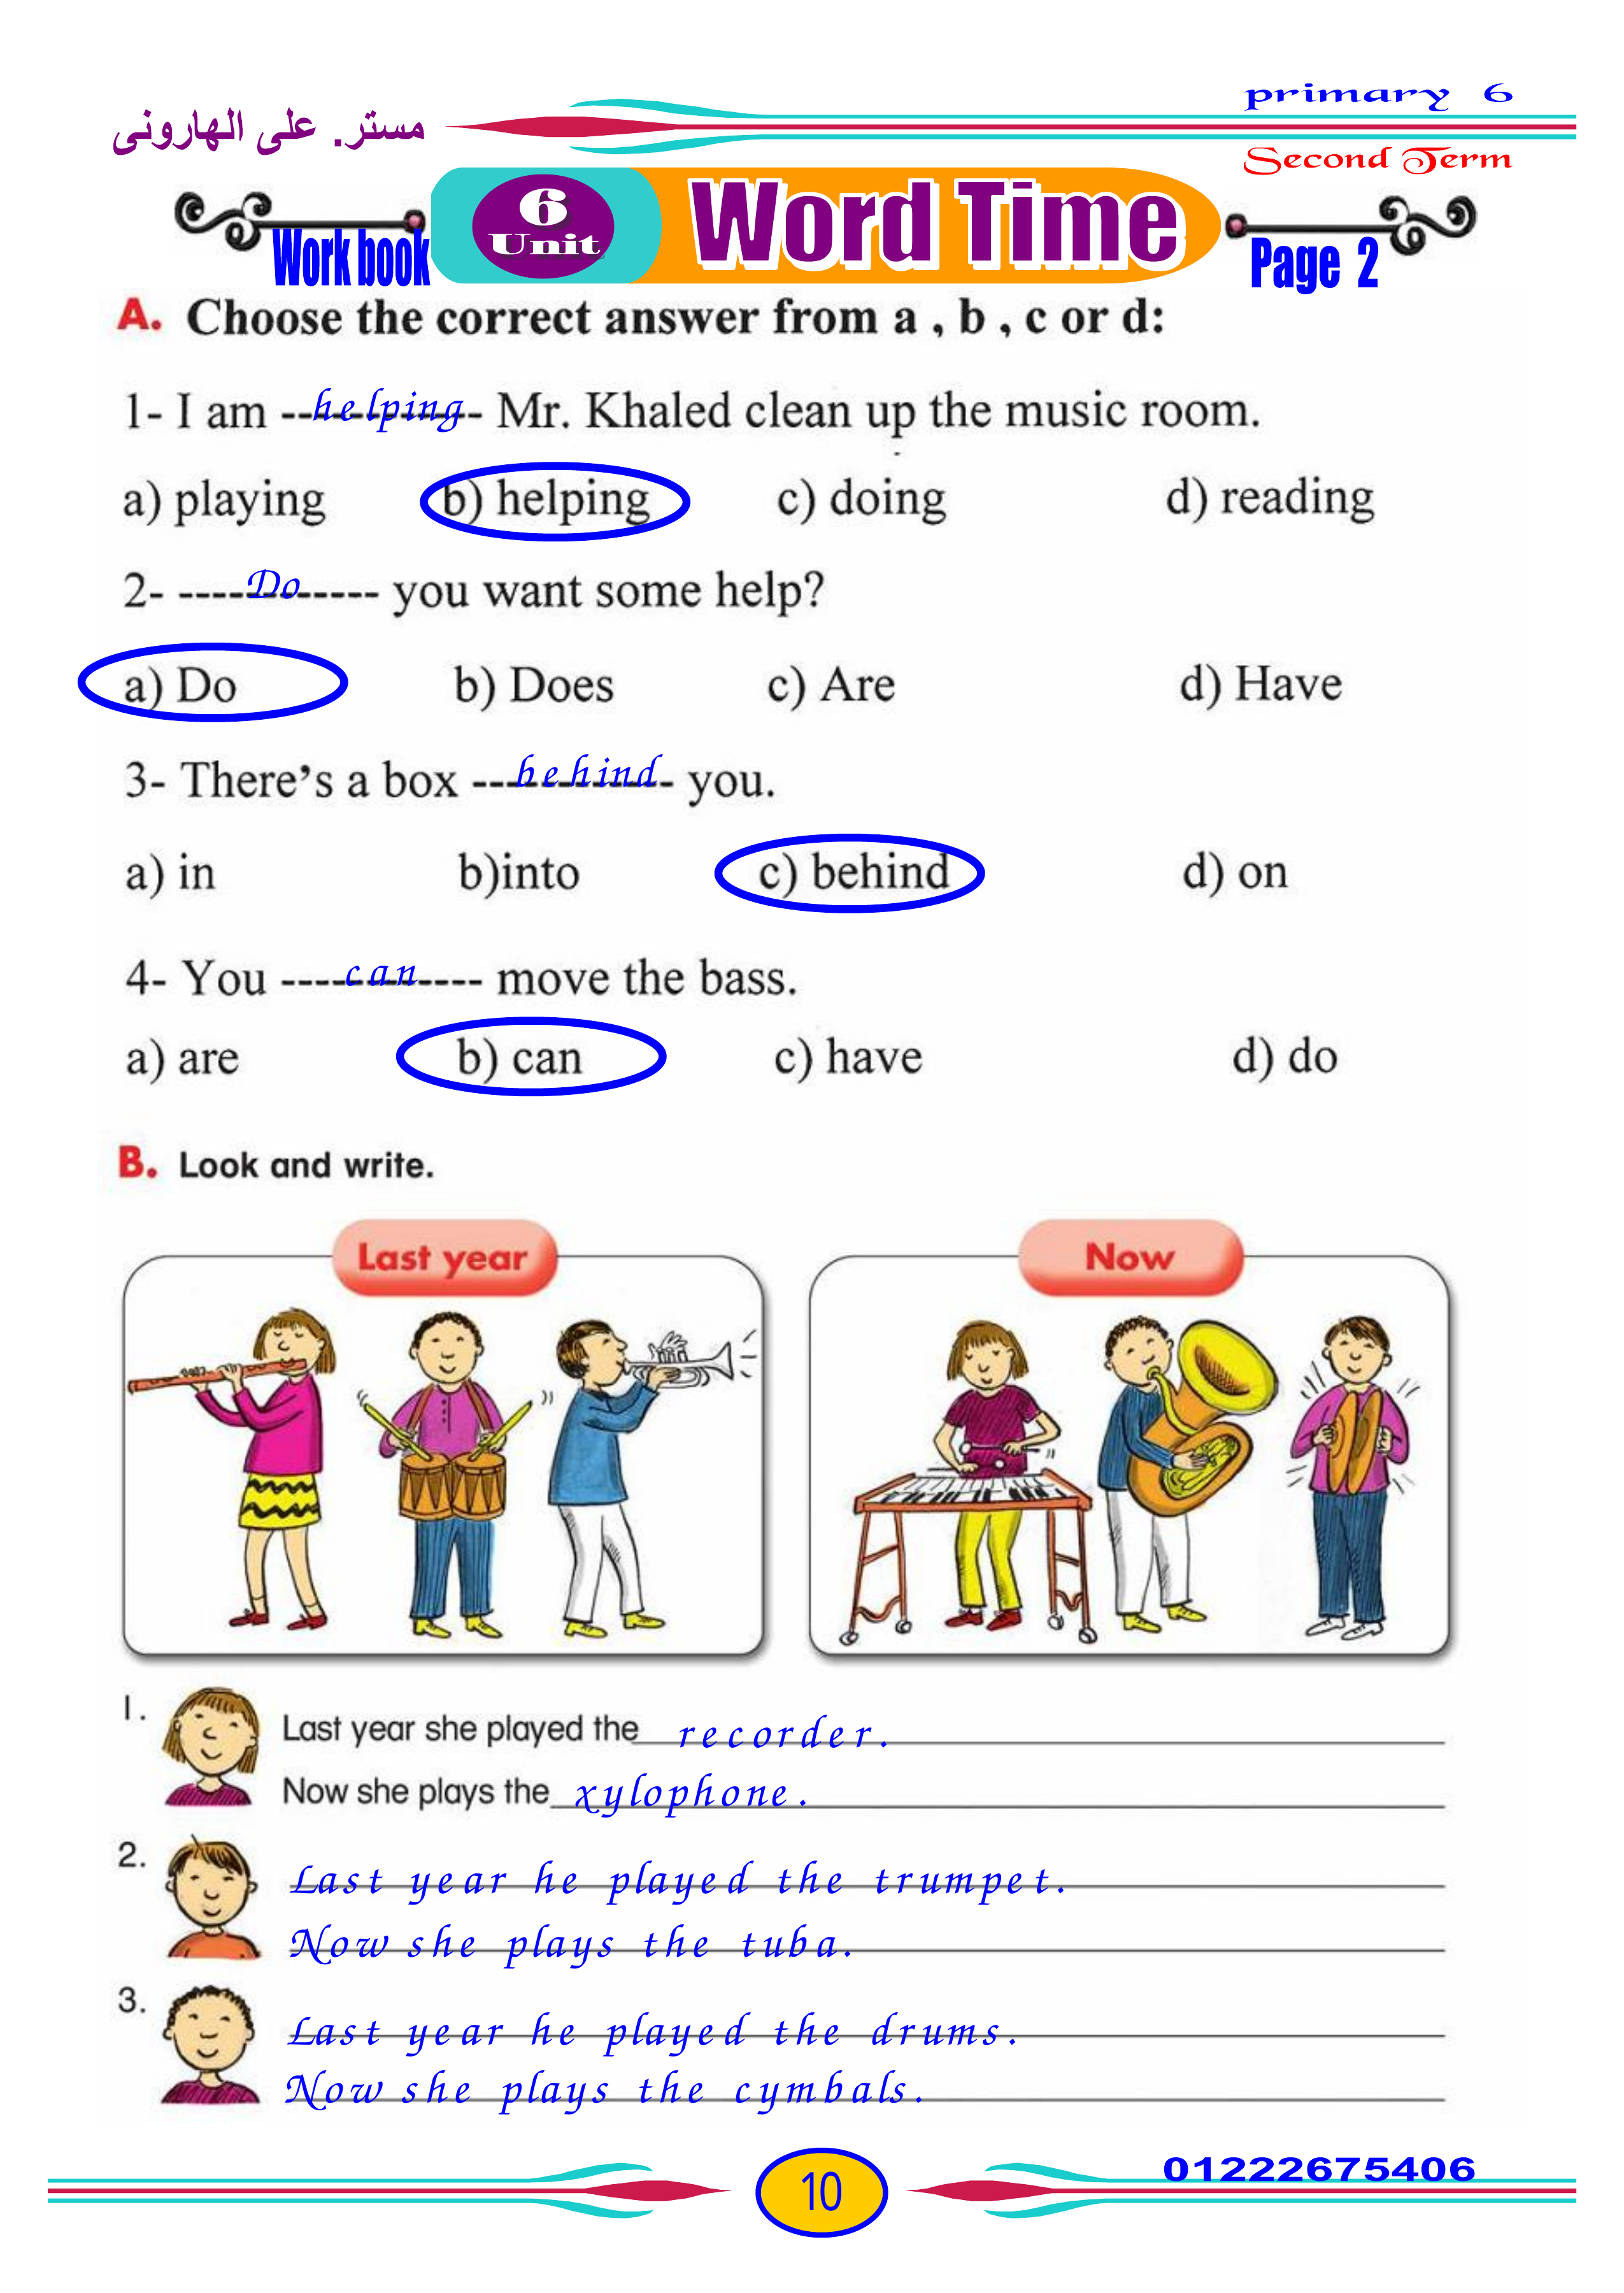 مستر. على الهارونى
primary 6
Second Term
Work book
6
Unit
Word Time
Page 2
A. Choose the correct answer from a , b , c or d:
1- I am --helping- Mr. Khaled clean up the music room.
a) playing b) helping c) doing d) reading
2- ----Do----- you want some help?
a) Do b) Does c) Are d) Have
3- There's a box --behind- you.
a) in b)into c) behind d) on
4- You ----can---- move the bass.
a) are b) can c) have d) do
B. Look and write.
Last year Now
1. Last year she played the recorder.
Now she plays the xylophone.
2. Last year he played the trumpet.
Now she plays the tuba.
3. Last year he played the drums.
Now she plays the cymbals.
10
01222675406